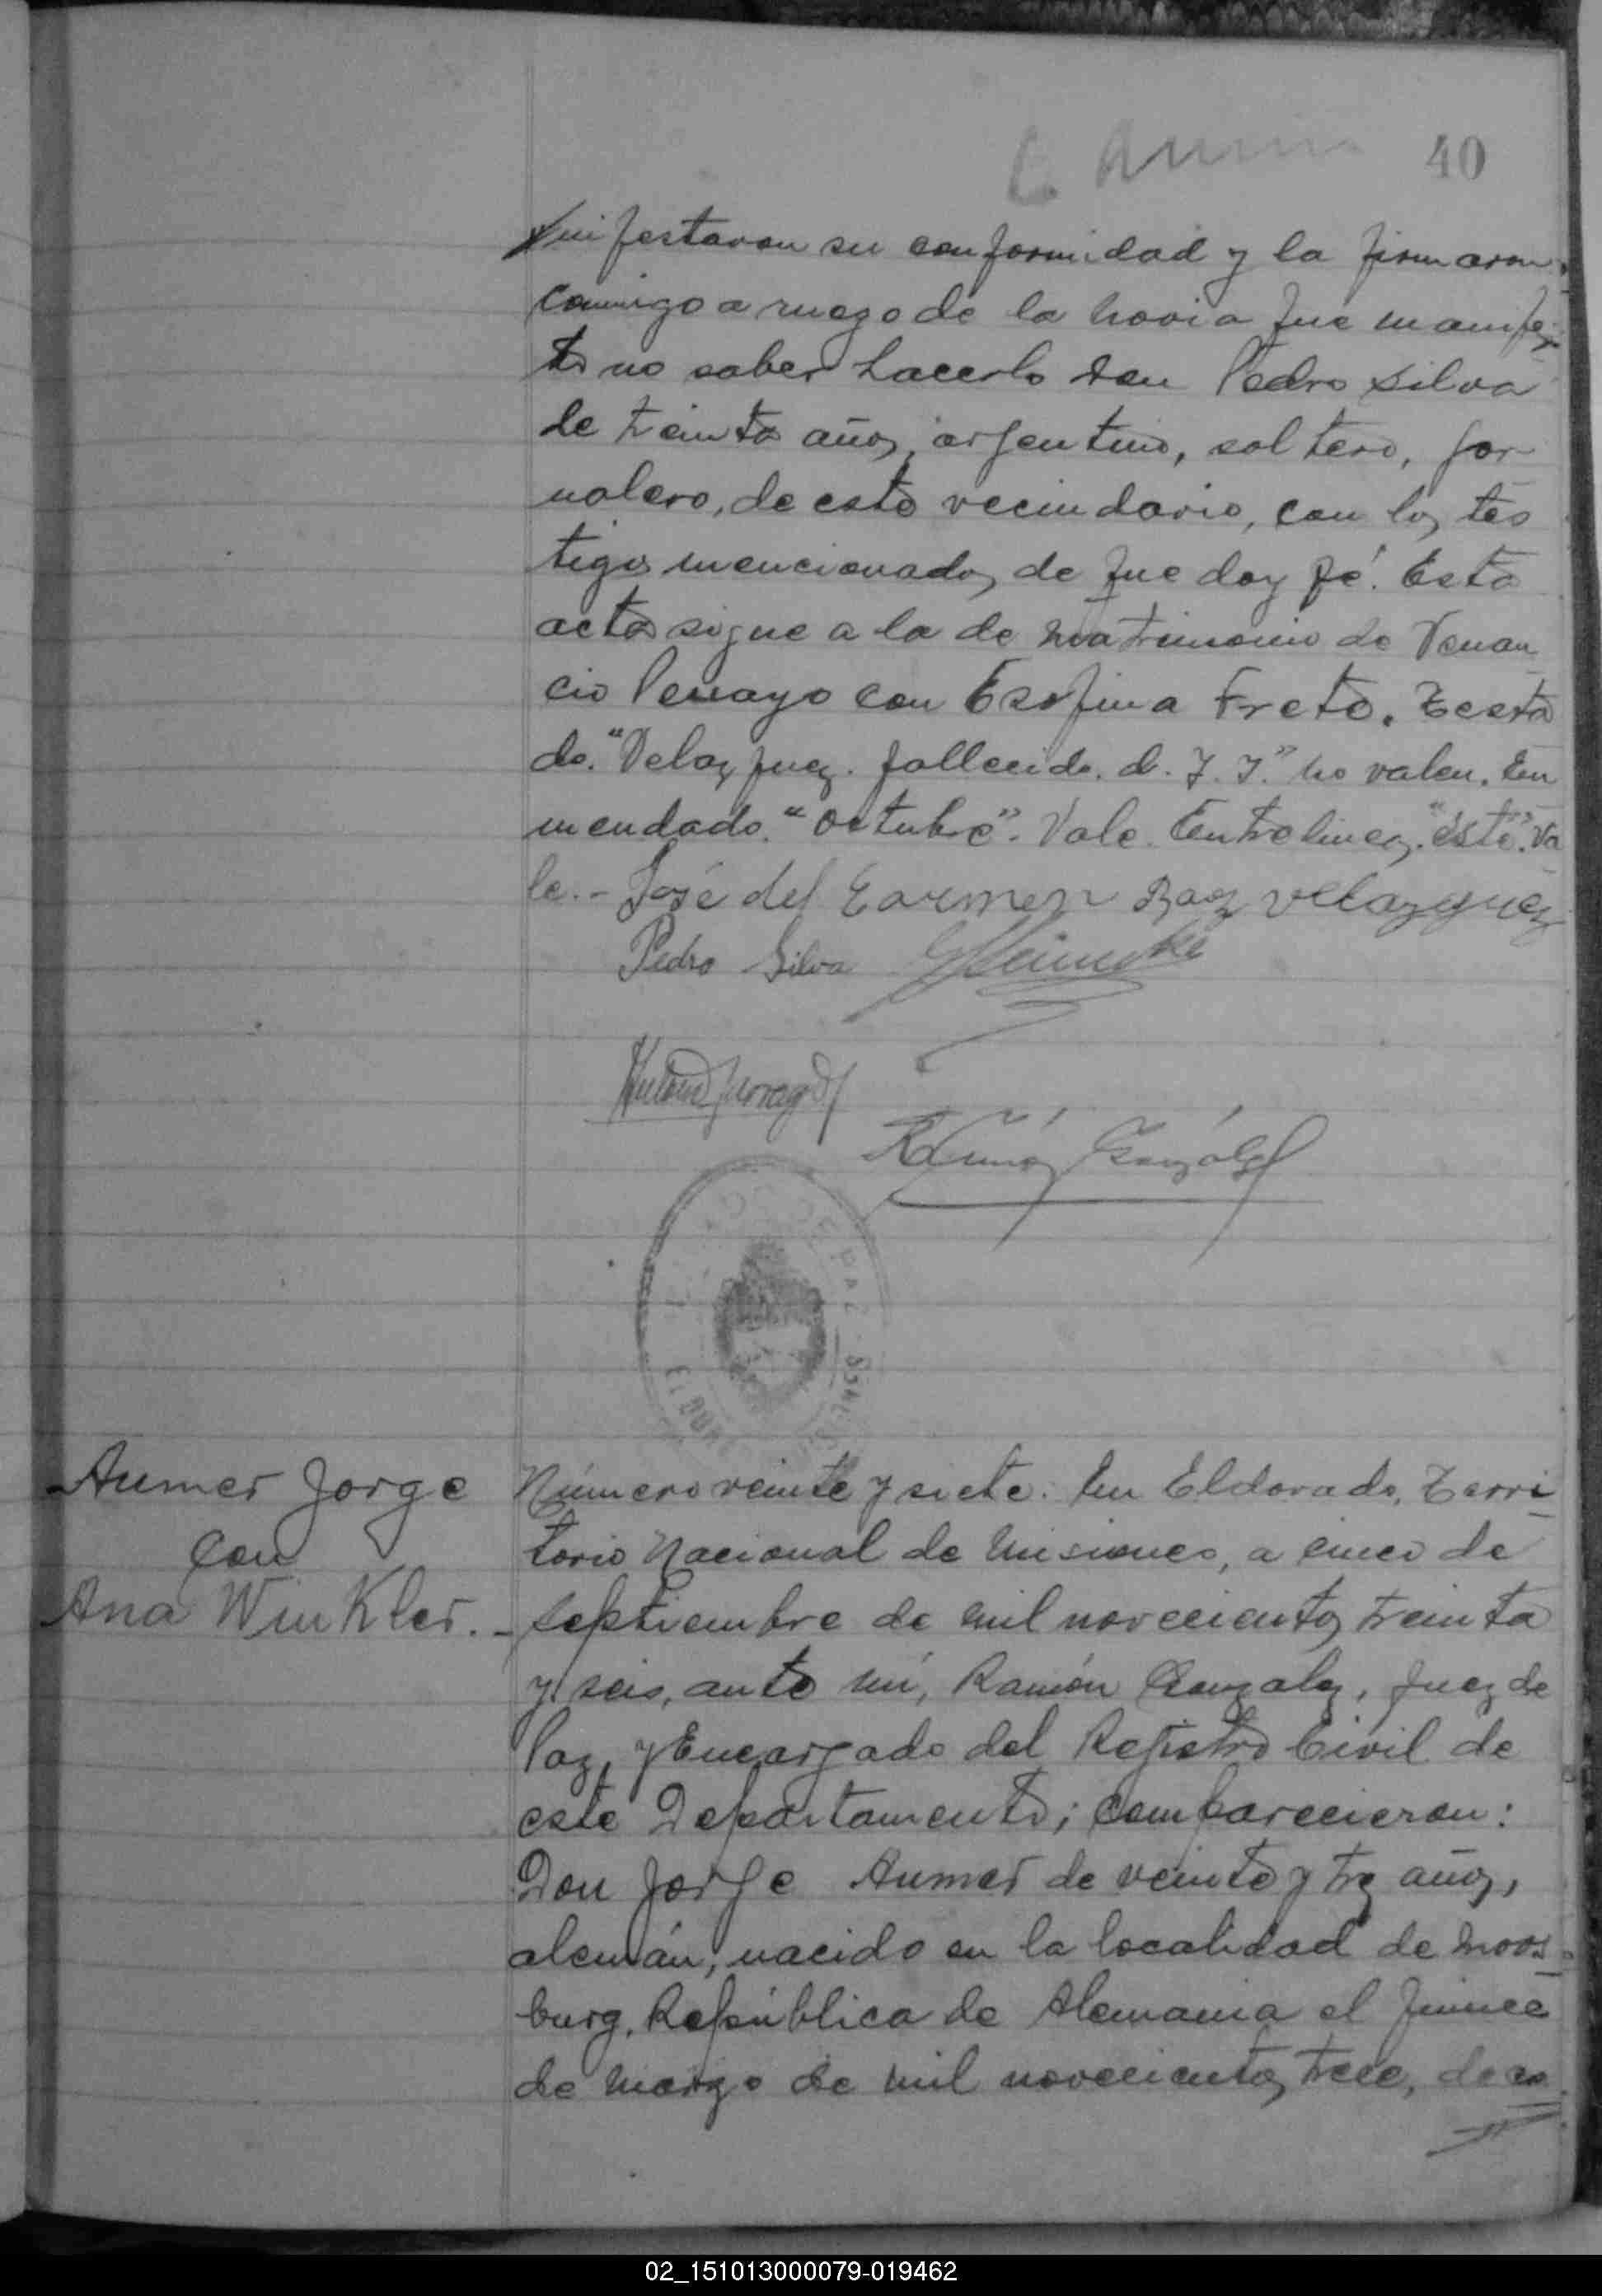 40
nifestaron su conformidad y la firmaron
conmigo a ruego de la novia que manifes
tó no saber hacerlo Don Pedro Silva
de treinta años, argentino, soltero, jor-
nalero, de este vecindario, con los tes
tigos mencionados, de que doy fé. Esta
acta sigue a la de matrimonio de Venan
cio Penayo con Esofina Freto. Testa
do. "Velazquez. fallecido. d. J. J." no valen. En
mendado. "Octubre". Vale. Entrelineas. "éste". Va
le. - José del Carmen Baez velazquez
Pedro Silva
Ramón González
Aumer Jorge
con
Ana Winkler. -
Número veinte y siete: En Eldorado, Terri
torio Nacional de Misiones, a cinco de
septiembre de mil novecientos treinta
y seis, ante mí, Ramón Gonzalez, Juez de
Paz, y Encargado del Registro Civil de
este Departamento; comparecieron:
Don Jorge Aumer de veinte y tres años,
alemán, nacido en la localidad de Moos
burg, República de Alemania el quince
de marzo de mil novecientos trece, de es
02_151013000079-019462